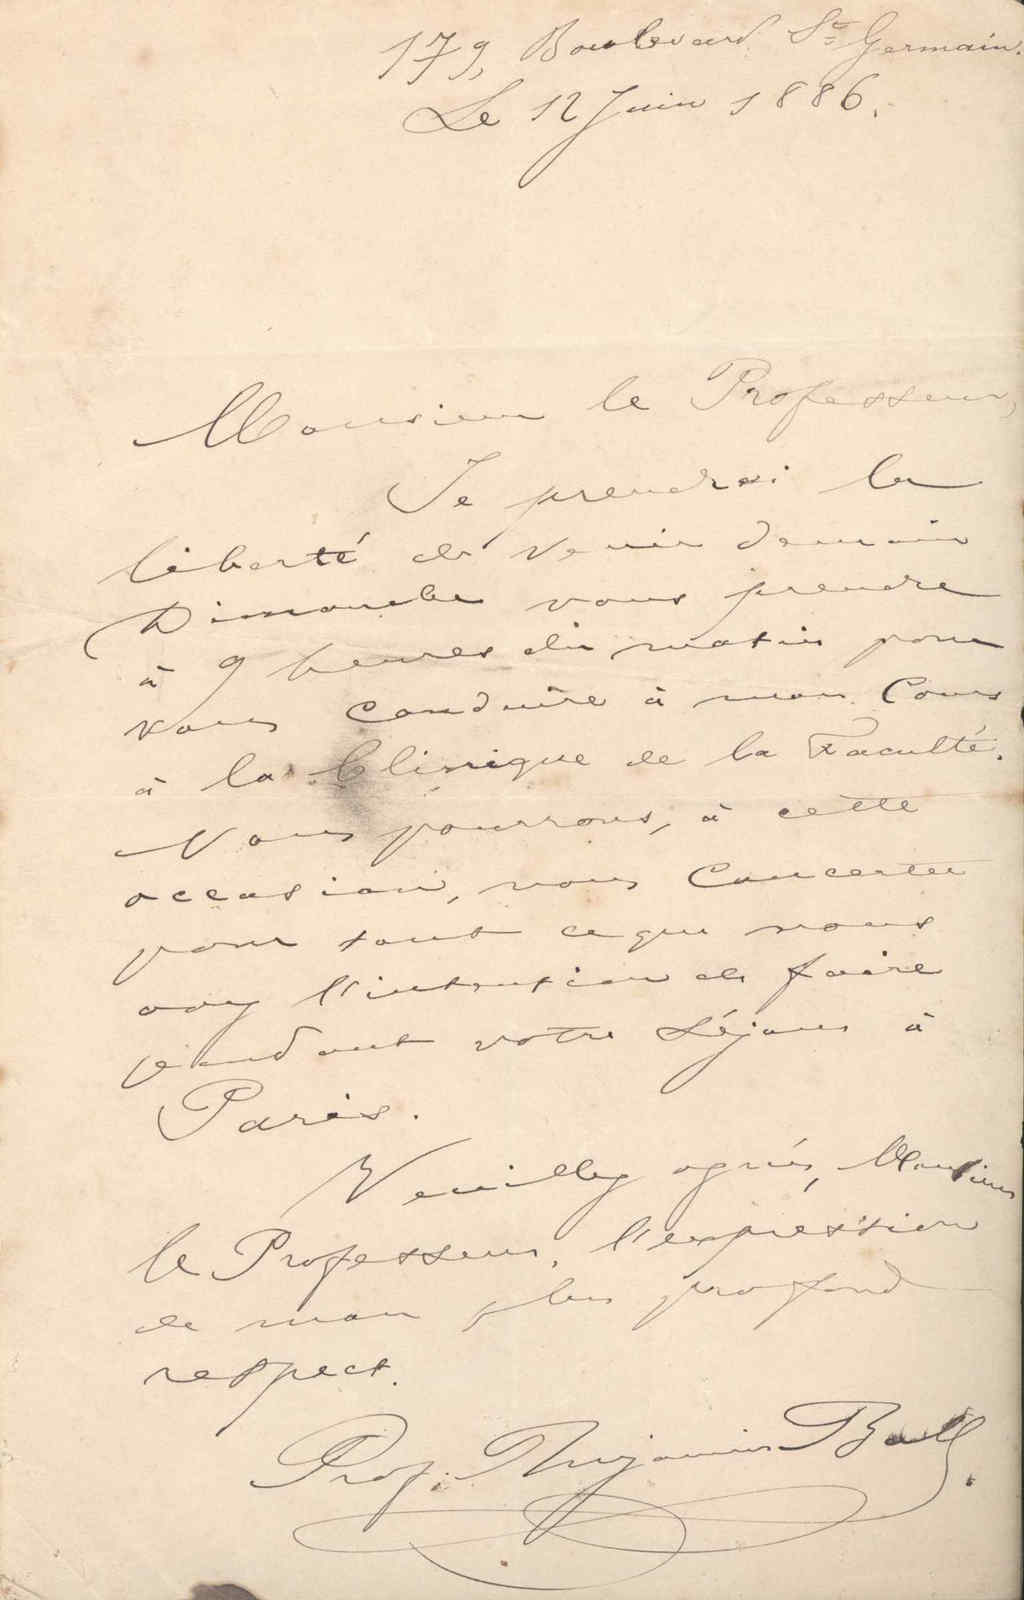 179, Boulevard St Germain.
Le 12 Juin 1886.
Monsieur le Professeur,
Je prendrai la
liberté de venir demain
Dimanche vous prendre
à 9 heures du matin pour
vous conduire à mon Cours
à la Clinique de la Faculté.
Nous pourrons, à cette
occasion, nous Concerter
pour tout ce que nous
avons l'intention de faire
pendant votre Séjour à
Paris.
Veuillez agréer, Monsieur
le Professeur, l'expression
de mon plus profond
respect.
Prof. Benjamin Ball.